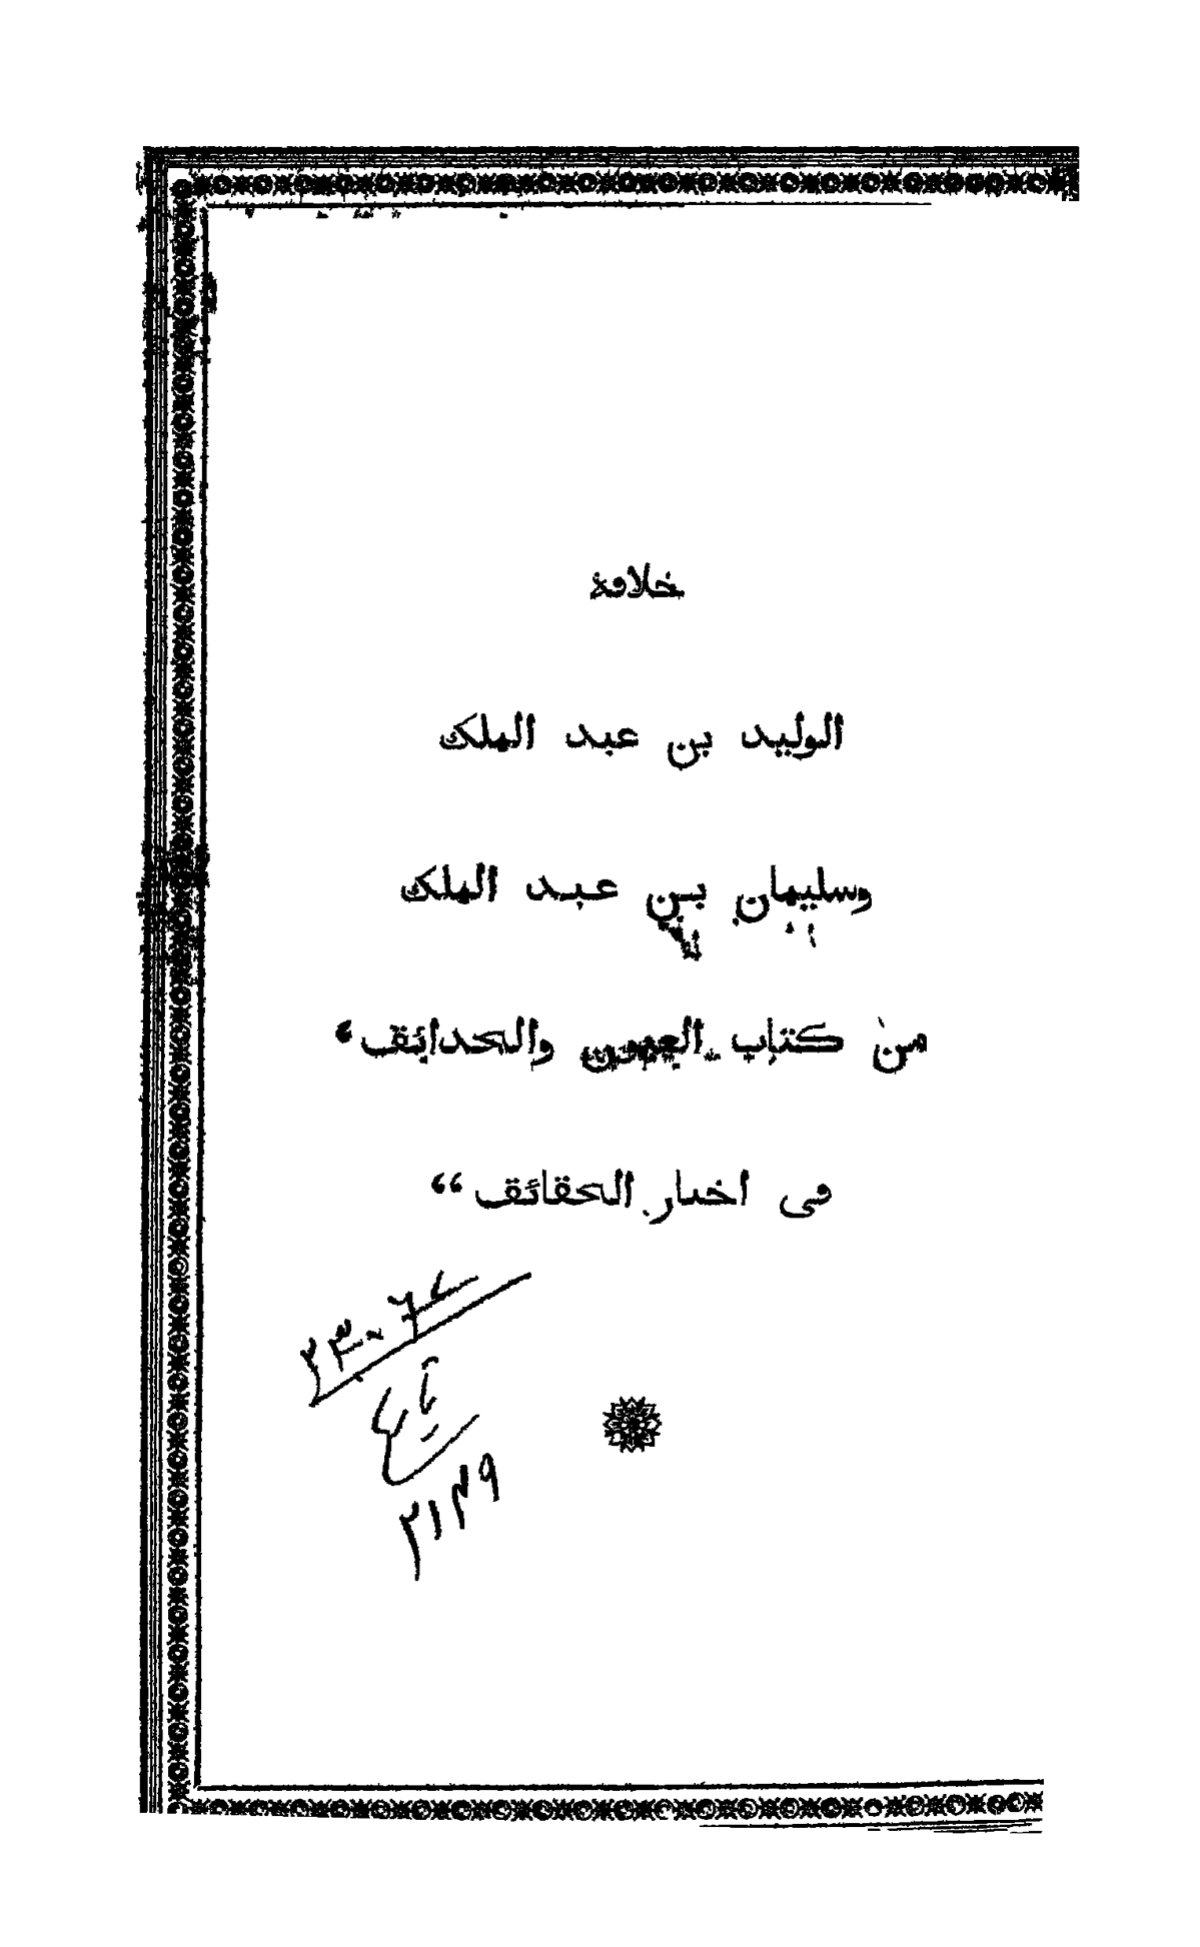 خلافة
الوليد بن عبد الملك
وسليمان بن عبد الملك
من كتاب العيون والحدائق“
فى اخبار الحقائق““
٢١٣٩